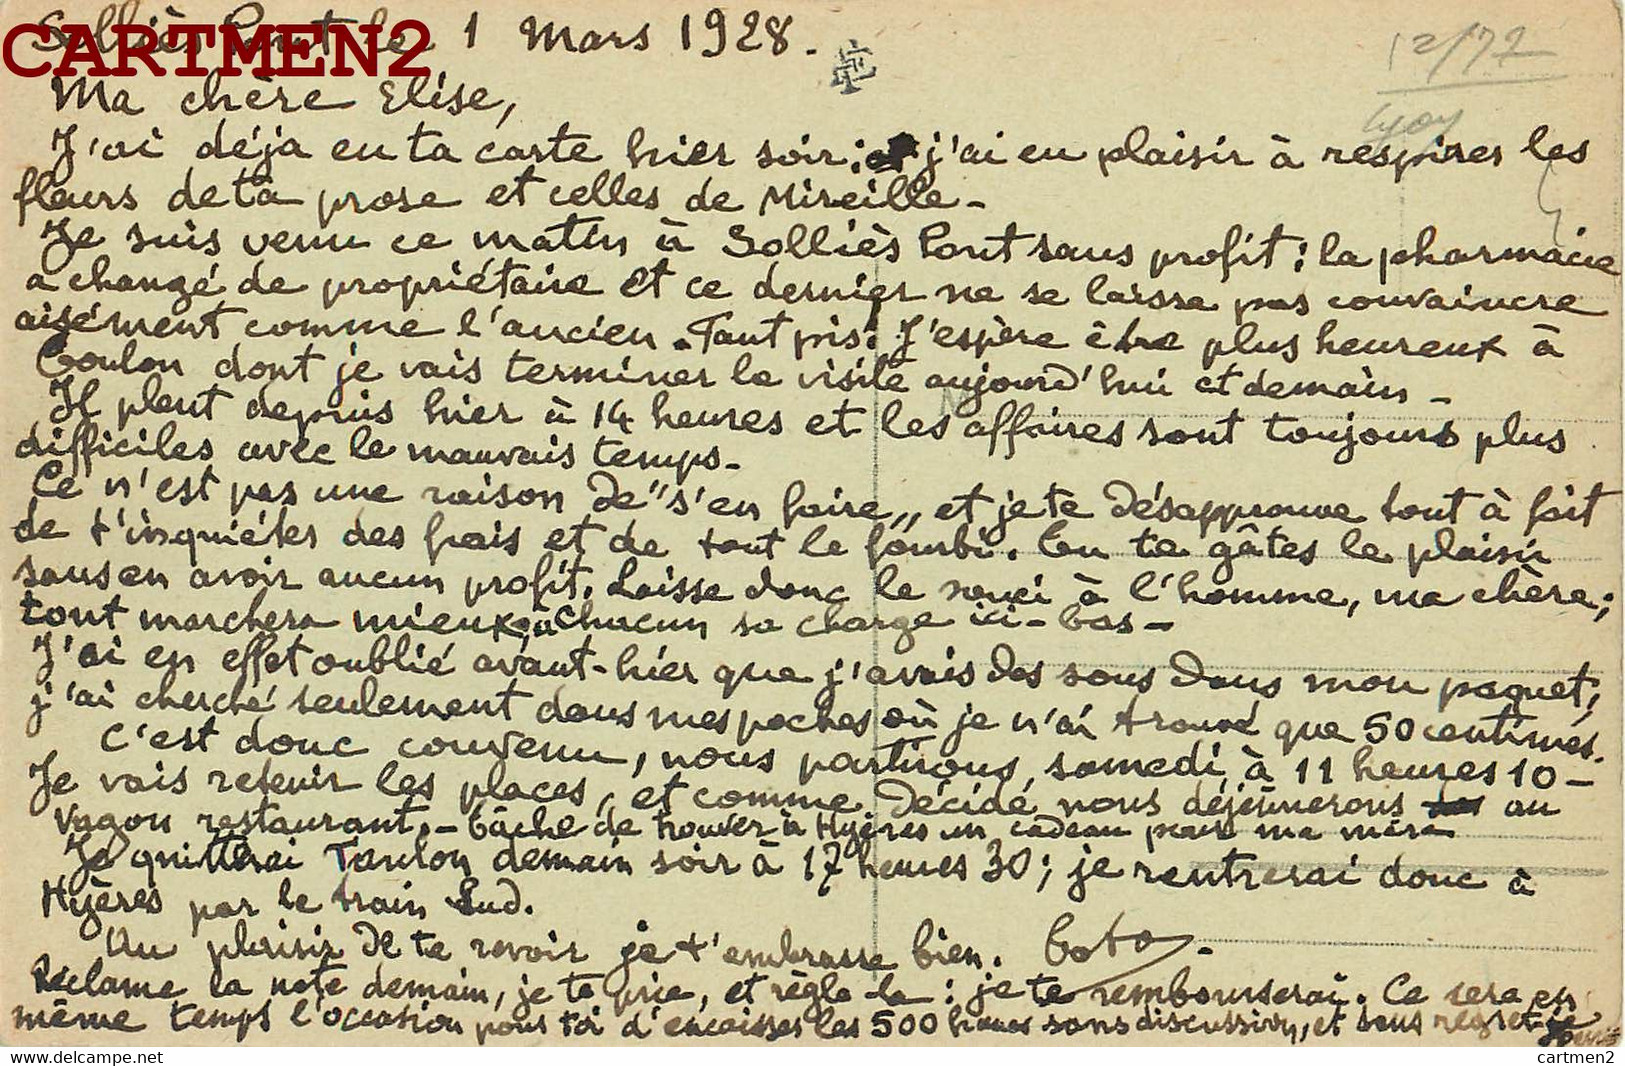 CARTMEN2
Solliès Pont le 1 Mars 1928.
12/77
Lyon
Ma chère Elise,
J'ai déja eu ta carte hier soir; j'ai eu plaisir à respirer les
fleurs de ta prose et celles de Mireille -
Je suis venu ce matin à Solliès Pont sans profit; la pharmacie
a changé de propriétaire et ce dernier ne se laisse pas convaincre
aisément comme l'ancien. Tant pis! J'espère être plus heureux à
Toulon dont je vais terminer la visite aujourd'hui et demain -
Il pleut depuis hier à 14 heures et les affaires sont toujours plus
difficiles avec le mauvais temps -
Ce n'est pas une raison de "s'en faire" et je te désapprouve tout à fait
de t'inquiéter des frais et de tout le fourbi. Tu te gâtes le plaisir
sans en avoir aucun profit. Laisse donc le souci à l'homme, ma chère;
tout marchera mieux; à chacun sa charge ici-bas -
J'ai en effet oublié avant-hier que j'avais des sous dans mon paquet;
j'ai cherché seulement dans mes poches où je n'ai trouvé que 50 centimes.
C'est donc convenu, nous partirons samedi à 11 heures 10 -
Je vais retenir les places, et comme décidé nous déjeûnerons au
Vagon restaurant. - Tâche de trouver à Hyères un cadeau pour ma mère
Je quitterai Toulon demain soir à 17 heures 30; je rentrerai donc à
Hyères par le train Sud.
Au plaisir de te revoir je t'embrasse bien. Toto.
Réclame la note demain, je te prie, et règle-la: je te rembourserai. Ce sera en
même temps l'occasion pour toi d'encaisser les 500 francs sans discussion, et sans regret
cartmen2